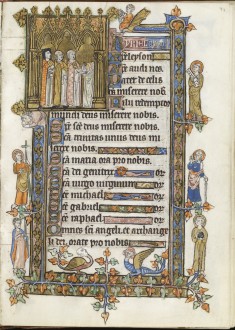 eleyson
xpe audi nos
ater de celis
s miserere nob
fili redemptor
mundi deus miserere nobis.
ps sce deus miserere nobis.
ca trinitas unus deus mi
serere nobis.
ca maria ora pro nobis.
ca dei genitrix or
ca virgo virginum or
ce michael or
ce gabriel or
ce raphael or
Omnes sci angeli et archange
li dei orate pro nobis